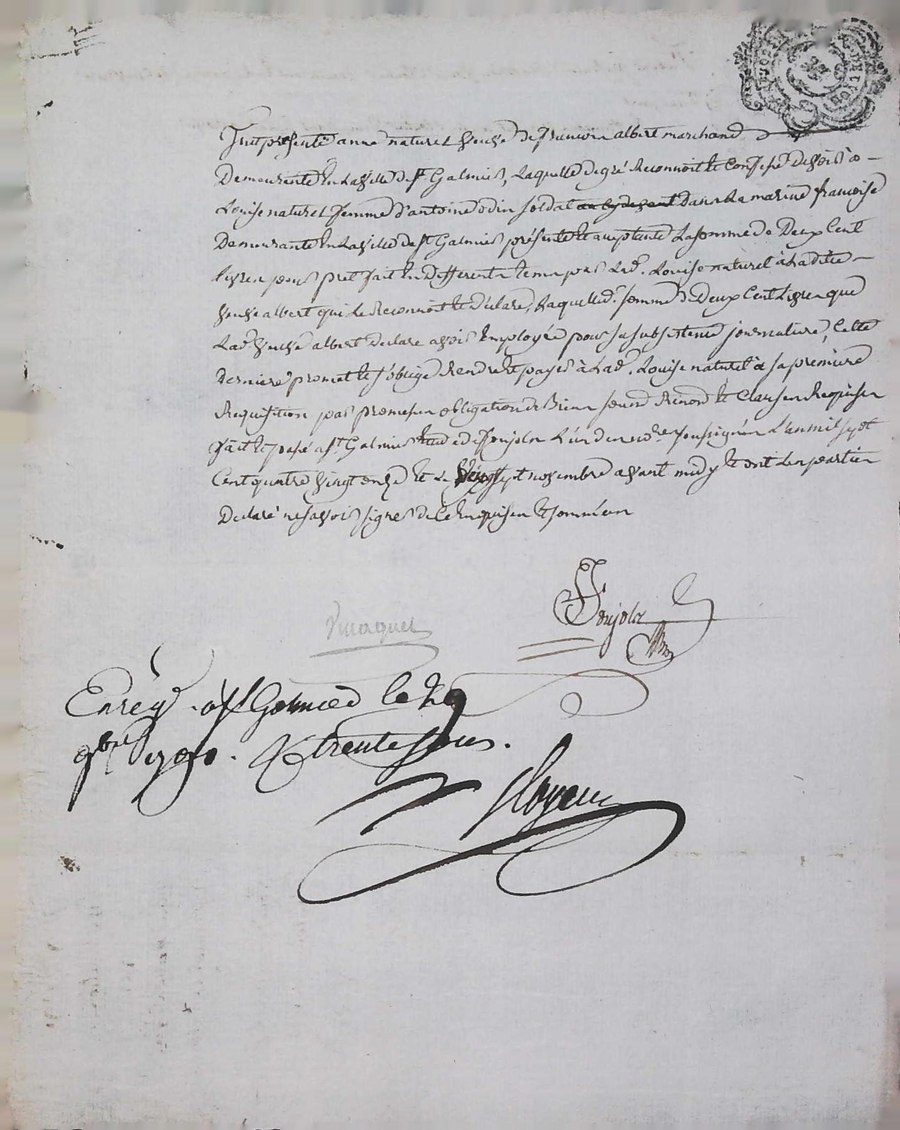 Fut présente anne naturel veuve de francois albert marchand
Demeurante En la ville de st Galmier, Laquelle de gré Reconnoit et Confesse Devoir à
Louise naturel femme d'antoine odin soldat dans La marine françoise
Demeurante En La ville de st Galmier présente et acceptante La somme de Deux Cent
livres pour prêt fait En differents tems par Lad. Louise naturel à Ladite
veuve albert qui Le reconnoit et Declare, Laquelle somme de Deux Cent Livres que
Lad. veuve albert Declare avoir Employée pour sa subsistence journaliere, Cette
Derniere promet et s'oblige Rendre et payer à Lad. Louise naturel à sa premiere
Requisition par promesses obligation de Biens Renond et Clauses Requises
fait et passé à st Galmier Etude de fonjolz L'un des no.res soussignés L'an mil sept
Cent quatre vingt onze et Le vingt sept novembre avant midy et ont Les parties
Declaré ne savoir signer de Ce Enquises et sommées
fonjolz
Enrég. à st Galmier le 29
9bre 1791. R trente sous.